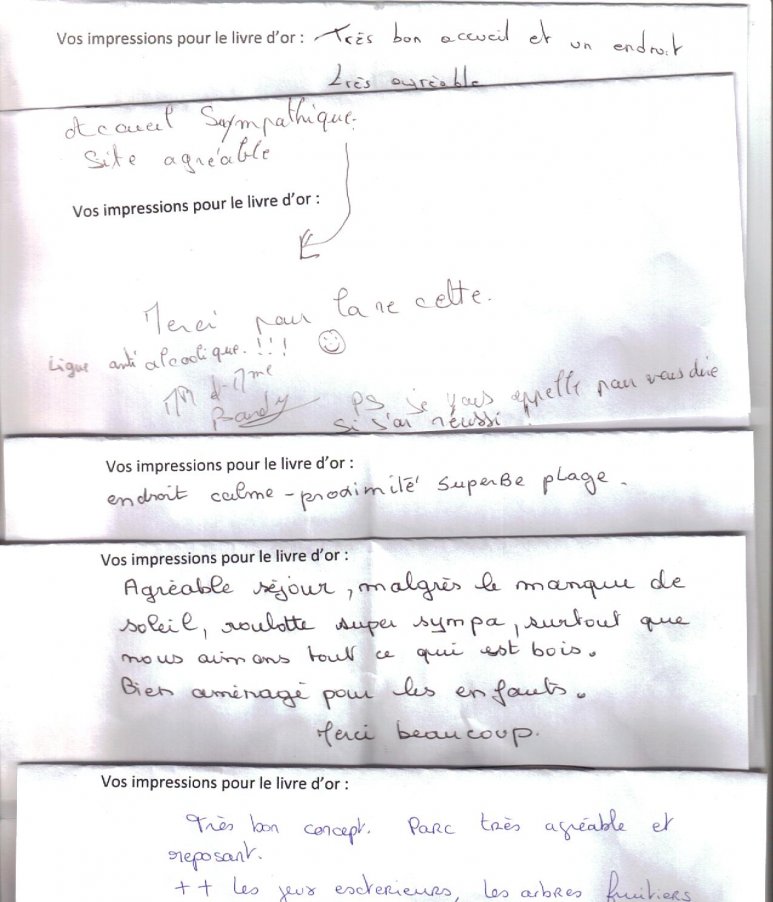 Vos impressions pour le livre d'or : Très bon accueil et un endroit
très agréable
Accueil Sympathique.
Site agréable
Vos impressions pour le livre d'or :
Merci pour la recette.
Ligue anti alcoolique. !!! ☺
Mr & Mme
PS je vous appelle pour vous dire
si j'ai réussi !
Vos impressions pour le livre d'or :
endroit calme - proximité superBe plage.
Vos impressions pour le livre d'or :
Agréable séjour, malgrès le manque de
soleil, roulotte super sympa, surtout que
nous aimons tout ce qui est bois.
Bien aménagé pour les enfants.
Merci beaucoup.
Vos impressions pour le livre d'or :
Très bon concept. Parc très agréable et
reposant.
++ les jeux exterieurs, les arbres fruitiers